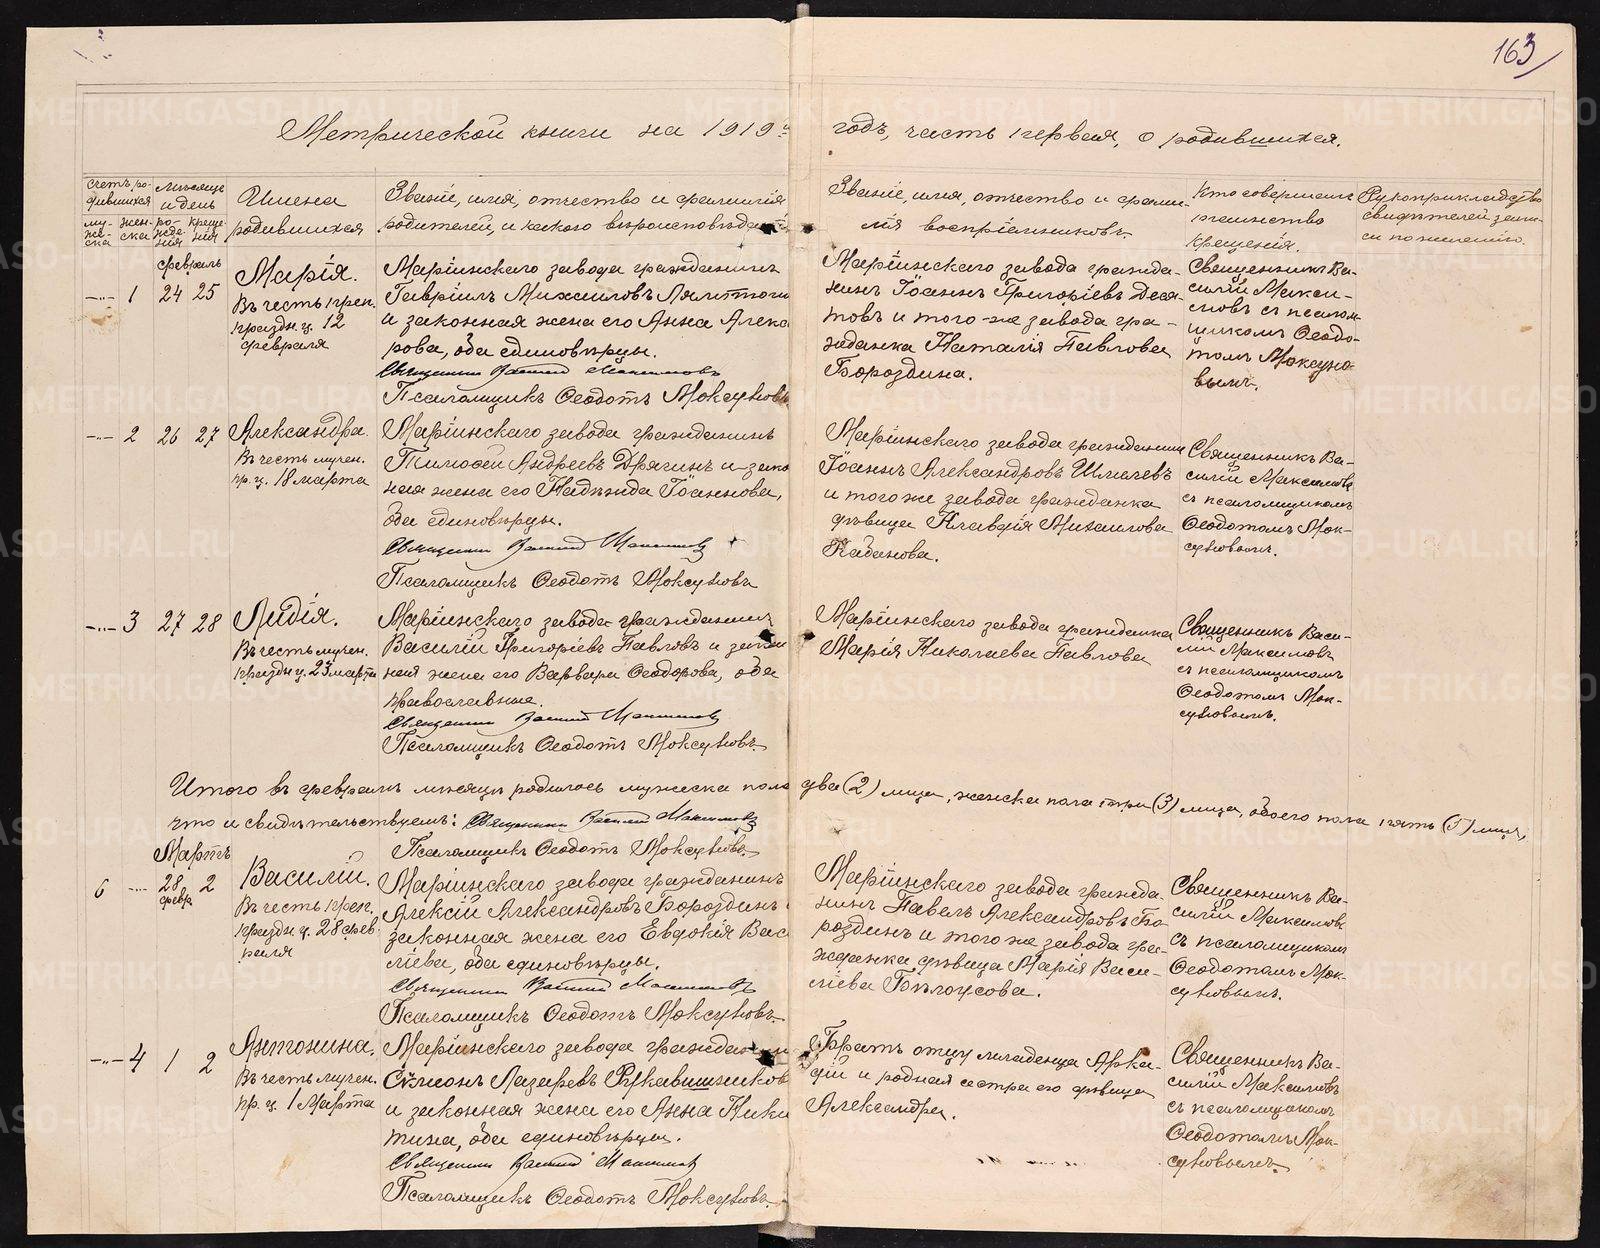 163
Метрической книги на 1919й годъ, часть первая, о родившихся.
Счетъ родившихся
муже-ска
жен-ска
Мѣсяцъ и день
рожде-нія
креще-нія
Имена родившихся
Званіе, имя, отчество и фамилія
родителей, и какого вѣроисповѣданія
Званіе, имя, отчество и фами-
лія воспріемниковъ.
Кто совершалъ
таинство
крещенія.
Рукоприкладство
свидѣтелей запи-
си по желанію.
февраль
1 24 25
Марія.
Въ честь преп.
праздн. ц. 12
февраля
Маріинскаго завода гражданинъ
Гавріилъ Михаиловъ
и законная жена его Анна
рова, оба единовѣрцы.
Священникъ Василій Максимовъ
Псаломщикъ Ѳеодотъ Моксуновъ
Маріинскаго завода гражда-
нинъ Іоаннъ Григоріевъ Деся-
товъ и того-же завода гра-
жданка Наталія Павлова
Бороздина.
Священникъ Ва-
силій Макси-
мовъ съ псалом-
щикомъ Ѳеодо-
томъ Моксуно-
вымъ.
2 26 27
Александра.
Въ честь мучен.
пр. ц. 18 марта
Маріинскаго завода гражданинъ
Тимоѳей Андреевъ Дрягинъ и закон
ная жена его Надежда Іоаннова,
оба единовѣрцы.
Священникъ Василій Максимовъ
Псаломщикъ Ѳеодотъ Моксуновъ
Маріинскаго завода гражданинъ
Іоаннъ Александровъ Шмилевъ
и того же завода гражданка
дѣвица Клавдія Михаилова
Кабанова.
Священникъ Ва-
силій Максимовъ
съ псаломщикомъ
Ѳеодотомъ Мок-
суновымъ.
3 27 28
Лидія.
Въ честь мучен.
праздн. ц. 23 марта
Маріинскаго завода гражданинъ
Василій Григоріевъ Павловъ и закон
ная жена его Варвара Ѳеодорова, оба
православные.
Священникъ Василій Максимовъ
Псаломщикъ Ѳеодотъ Моксуновъ
Маріинскаго завода гражданка
Марія Николаева Павлова
Священникъ Васи-
лій Максимовъ
съ псаломщикомъ
Ѳеодотомъ Мок-
суновымъ.
Итого въ февралѣ мѣсяцѣ родилось мужеска пола два (2) лица, женска пола три (3) лица, обоего пола пять (5) лицъ,
что и свидѣтельствуемъ: Священникъ Василій Максимовъ
Псаломщикъ Ѳеодотъ Моксуновъ
Мартъ
6 28 февр. 2
Василій.
Въ честь преп.
праздн. ц. 28 фев-
раля
Маріинскаго завода гражданинъ
Алексій Александровъ Бороздинъ
законная жена его Евдокія Вас
ліева, оба единовѣрцы.
Священникъ Василій Максимовъ
Псаломщикъ Ѳеодотъ Моксуновъ
Маріинскаго завода гражда-
нинъ Павелъ Александровъ Бо-
роздинъ и того же завода гра-
жданка дѣвица Марія Васи-
ліева Бѣлоусова.
Священникъ Ва-
силій Максимовъ
съ псаломщикомъ
Ѳеодотомъ Мок-
суновымъ.
4 1 2
Антонина.
Въ честь мучен.
пр. ц. 1 Марта
Маріинскаго завода гражданин
Лазаревъ Рукавишников
и законная жена его Анна Ники
тина, оба единовѣрцы.
Священникъ Василій Максимовъ
Псаломщикъ Ѳеодотъ Моксуновъ
Братъ отцу младенца Арка-
дій и родная сестра его дѣвица
Александра.
Священникъ Ва-
силій Максимовъ
съ псаломщикомъ
Ѳеодотомъ Мок-
суновымъ.
METRIKI.GASO-URAL.RU